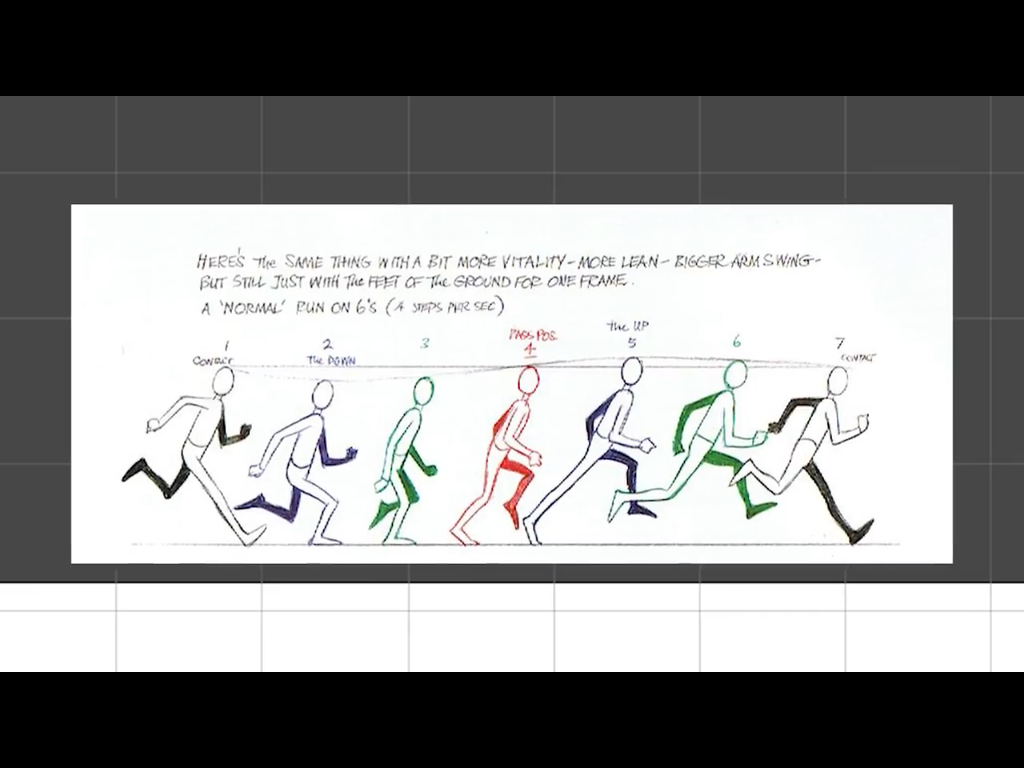 HERE'S the SAME THING WITH A BIT MORE VITALITY - MORE LEAN - BIGGER ARM SWING -
BUT STILL JUST WITH THE FEET OF The GROUND FOR ONE FRAME.
A 'NORMAL' RUN ON 6'S (4 STEPS PER SEC)
the UP
PASS POS.
1 2 3 4 5 6 7
CONTACT The DOWN CONTACT